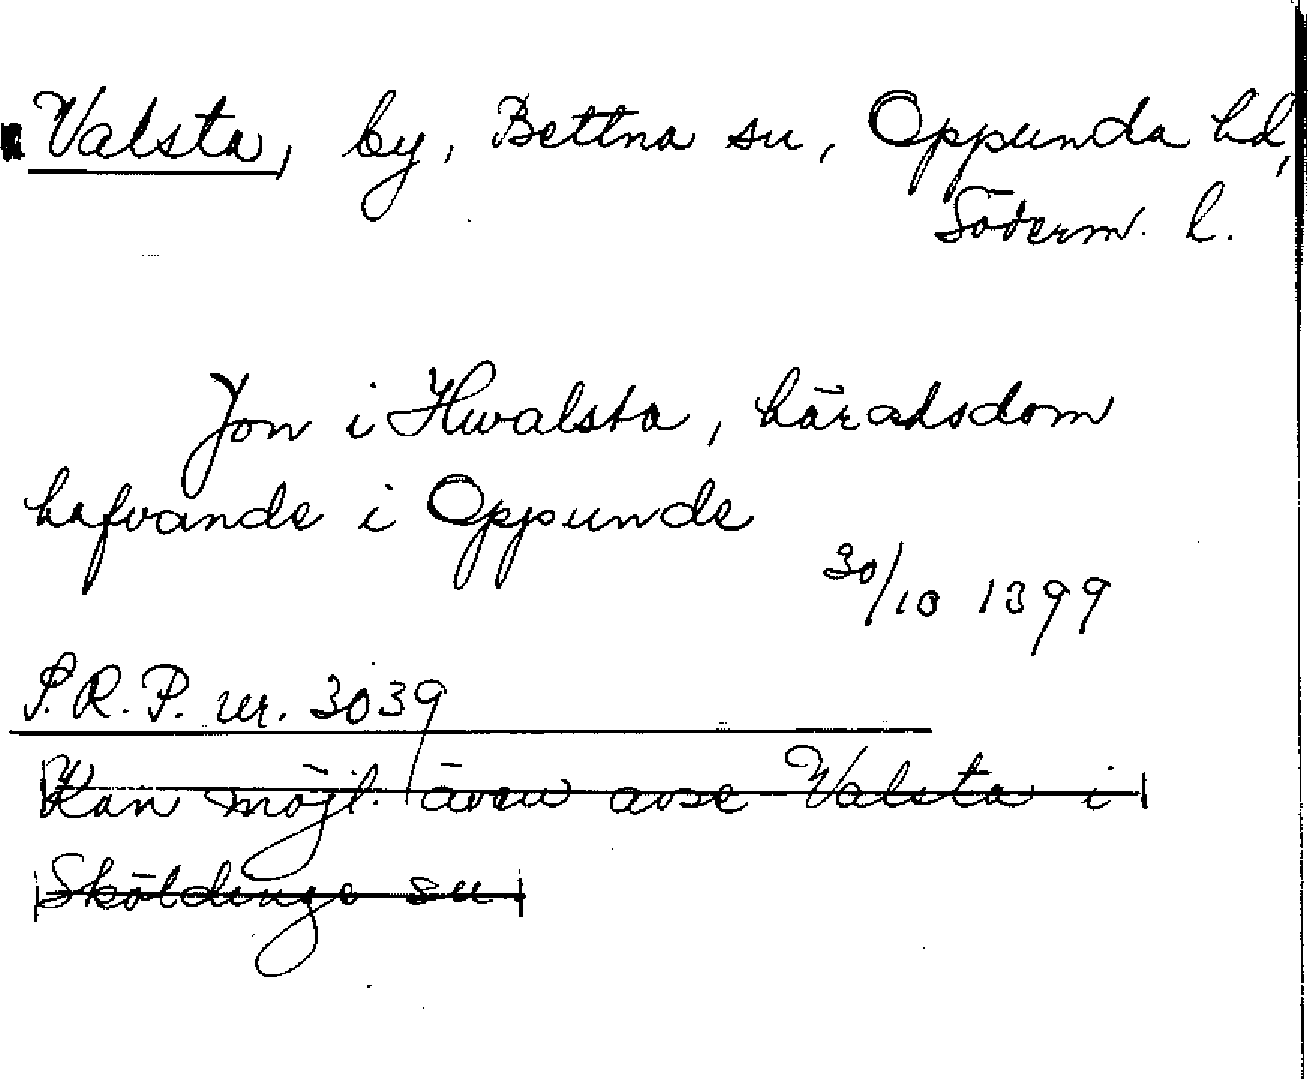 Valsta, by, Bettna sn, Oppunda hd,
Söderm. l.
Jon i Hwalsta, häradsdom
hafvande i Oppunde
30/10 1399
S.R.P. nr. 3039
Kan möjl. även avse Valsta i
Sköldinge sn